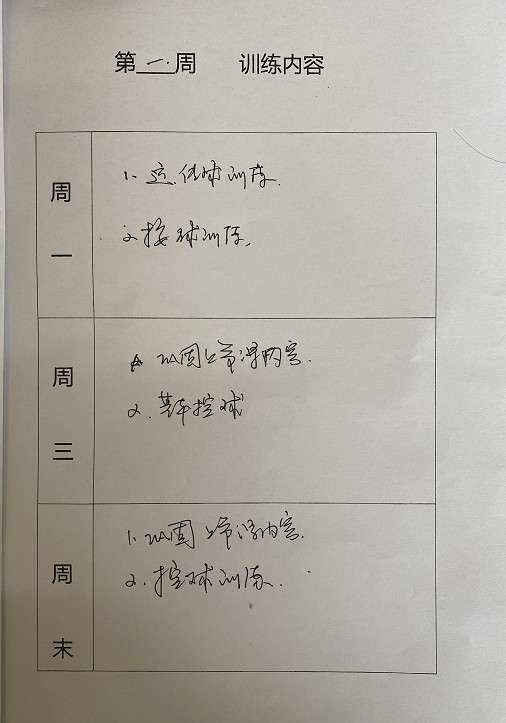 第一周 训练内容
周一
1. 运、传球训练.
2. 接球训练.
周三
1. 巩固上节课内容.
2. 基本控球
周末
1. 巩固上节课内容.
2. 控球训练.